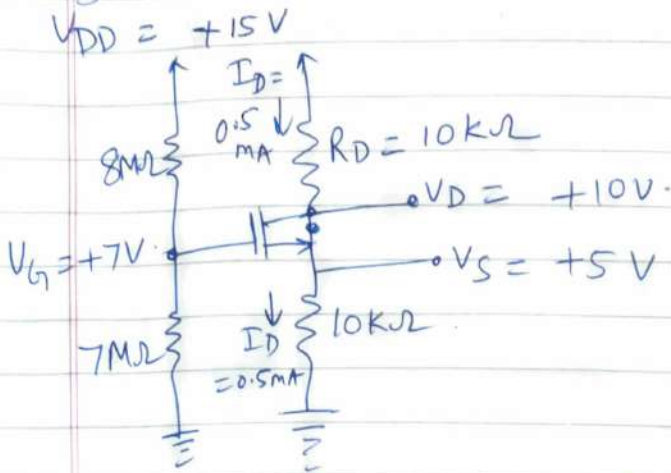 VDD = +15 V
ID =
0.5 mA
8MΩ
RD = 10KΩ
VD = +10V.
VG = +7V.
VS = +5 V
7MΩ
ID = 0.5mA
10KΩ.